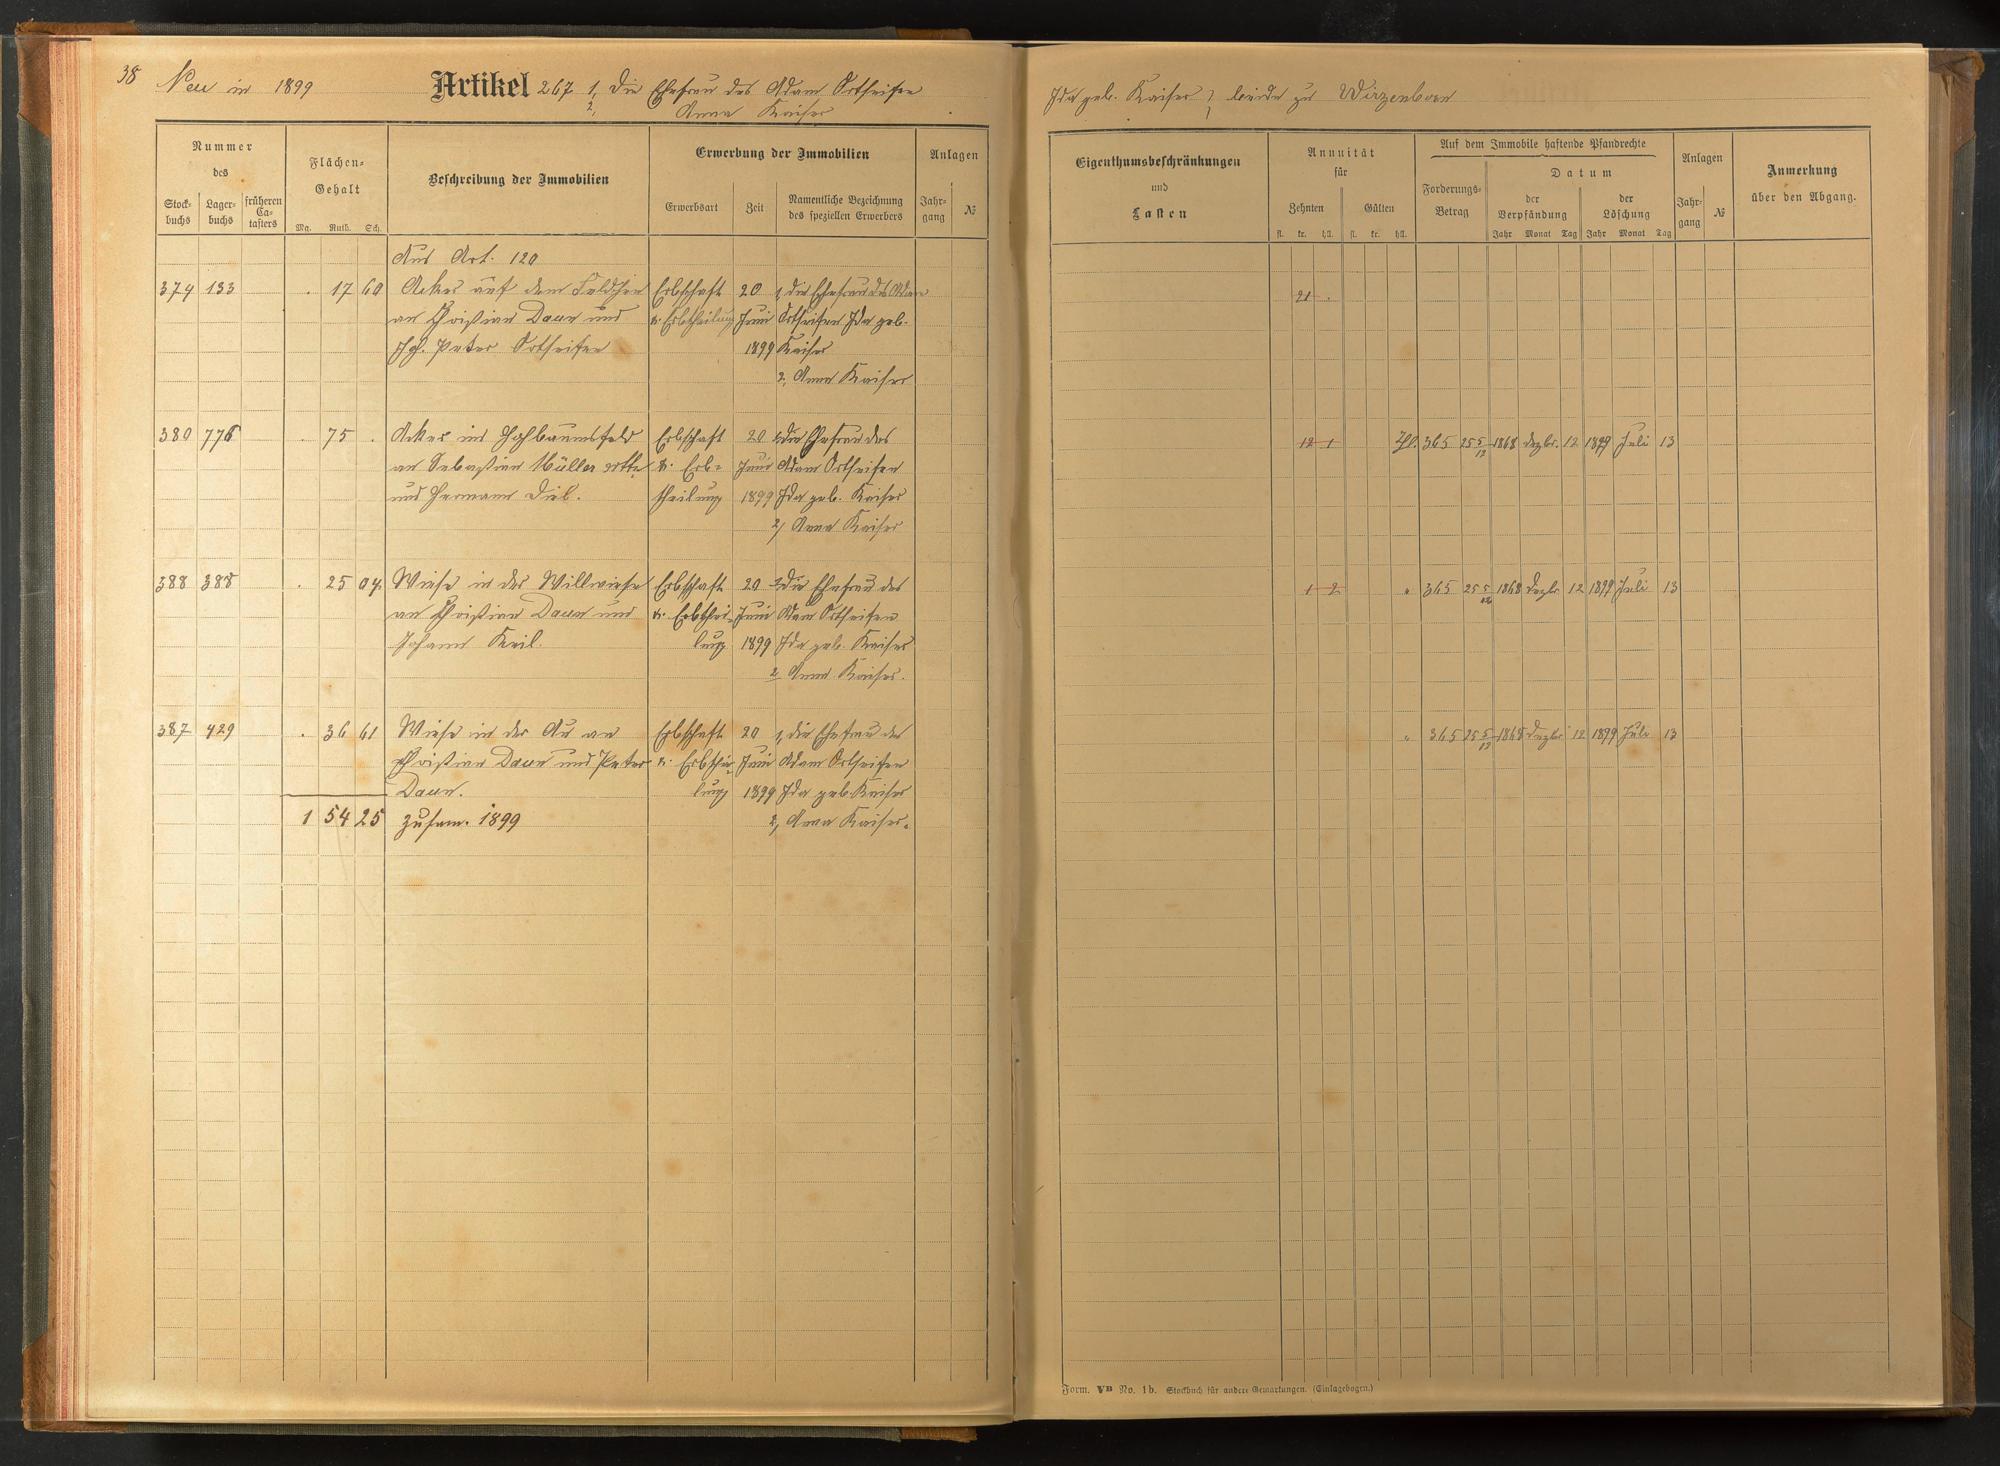 38 Neu in 1899 Artikel 267 1, Die Ehefrau des Adam Ortseifen
2, Anna Kaiser
Ida geb. Kaiser beide zu Wirzenborn
Nummer
des
Stock-
buchs
Lager-
buchs
früheren
Ca-
tasters
Flächen-
Gehalt
Mg. Ruth. Sch.
Beschreibung der Immobilien
Erwerbung der Immobilien
Erwerbsart
Zeit
Namentliche Bezeichnung
des speziellen Erwerbers
Anlagen
Jahr-
gang
№
Eigenthumsbeschränkungen
und
Lasten
Annuität
für
Zehnten
Gülten
fl. kr. hll. fl. kr. hll.
Auf dem Immobile haftende Pfandrechte
Forderungs-
Betrag
Datum
der
Verpfändung
der
Löschung
Jahr Monat Tag Jahr Monat Tag
Anlagen
Jahr-
gang
№
Anmerkung
über den Abgang.
Aus Art. 120
374 133 . 17 60 Acker auf dem Feldchen Erbschaft 20 1, die Ehefrau des Adam 21 .
an Christian Daun und u. Erbtheilung Juni Ortseifen Ida geb.
Jh. Peter Ortseifen 1899 Kaiser
2, Anna Kaiser
380 776 . 75 . Acker im Hohbaumsfeld Erbschaft 20 1, die Ehefrau des 12 1 365 25 5/12 1868 Dezbr. 12 1899 Juli 13
an Sebastian Müller u. Erb- Juni Adam Ortseifen
und Hermann Diel. theilung 1899 Ida geb. Kaiser
2) Anna Kaiser
388 388 . 25 04 Wiese in der Willwiese Erbschaft 20 1, die Ehefrau des 1 2 " 365 25 5/12 1868 Dezbr 12 1899 Juli 13
an Christian Daun und u. Erbthei- Juni Adam Ortseifen
Johann Keil. lung 1899 Ida geb. Kaiser
2 Anna Kaiser.
387 429 . 36 61 Wiese in der Au an Erbschaft 20 1, die Ehefrau des " 365 25 5/12 1868 Dezbr 12 1899 Juli 13
Christian Daun und Peter u. Erbthei- Juni Adam Ortseifen
Daun. lung 1899 Ida geb. Kaiser
1 54 25 zusam. 1899 2, Anna Kaiser.
Form. VB No. 1b. Stockbuch für andere Gemarkungen. (Einlagebogen.)